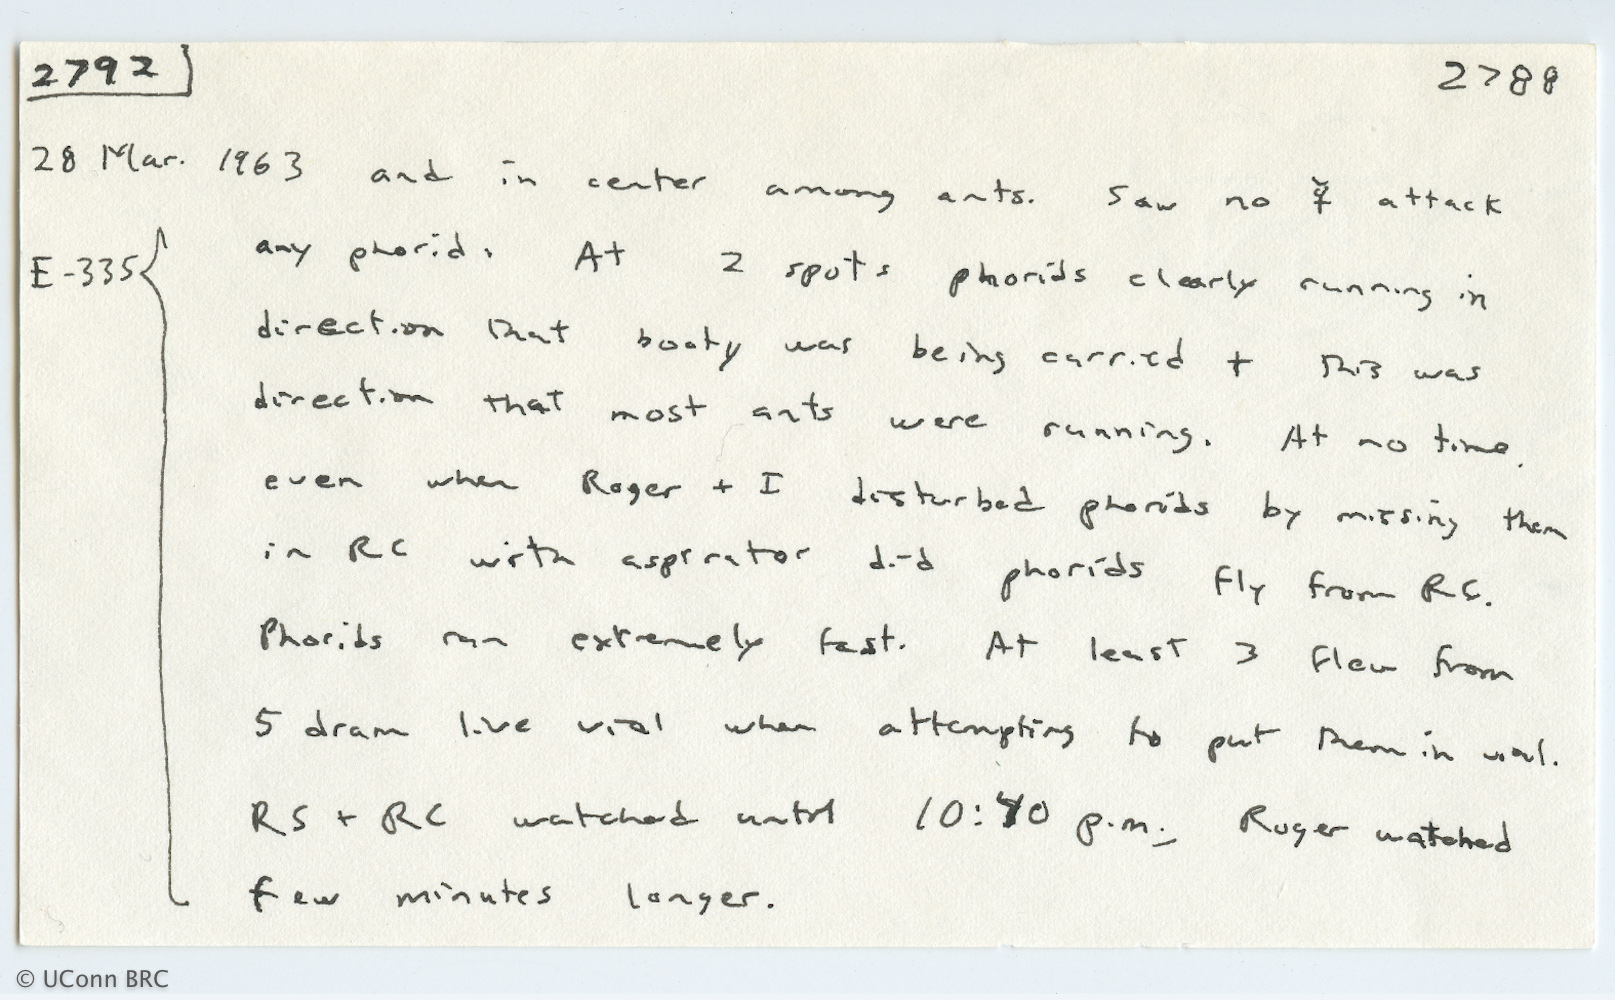 2792 2788
28 Mar. 1963 and in center among ants. Saw no ☿ attack
E-335 any phorid. At 2 spots phorids clearly running in
direction that booty was being carried + this was
direction that most ants were running. At no time,
even when Roger + I disturbed phorids by missing them
in RC with aspirator did phorids fly from RC.
Phorids run extremely fast. At least 3 flew from
5 dram live vial when attempting to put them in vial.
RS + RC watched until 10:40 p.m.; Roger watched
few minutes longer.
© UConn BRC